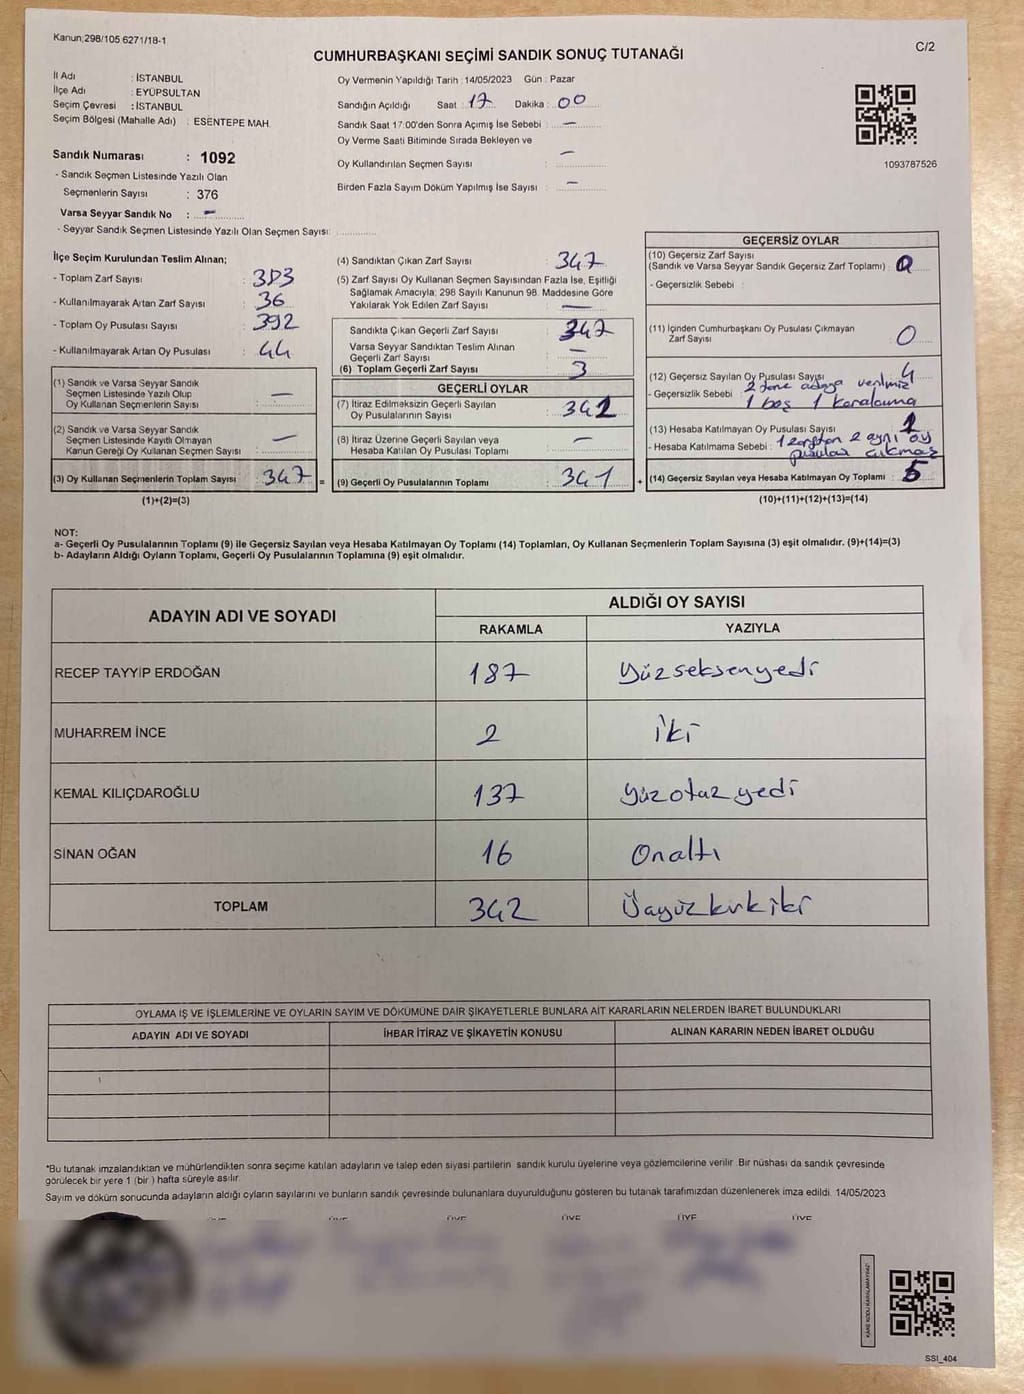 Kanun;298/105 6271/18-1
C/2
CUMHURBAŞKANI SEÇİMİ SANDIK SONUÇ TUTANAĞI
İl Adı : İSTANBUL
İlçe Adı : EYÜPSULTAN
Seçim Çevresi : İSTANBUL
Seçim Bölgesi (Mahalle Adı) : ESENTEPE MAH.
Sandık Numarası : 1092
- Sandık Seçmen Listesinde Yazılı Olan
Seçmenlerin Sayısı : 376
Varsa Seyyar Sandık No : -
- Seyyar Sandık Seçmen Listesinde Yazılı Olan Seçmen Sayısı:
Oy Vermenin Yapıldığı Tarih :14/05/2023 Gün : Pazar
Sandığın Açıldığı Saat : 17 Dakika : 00
Sandık Saat 17:00'den Sonra Açımış İse Sebebi : -
Oy Verme Saati Bitiminde Sırada Bekleyen ve
Oy Kullandırılan Seçmen Sayısı : -
Birden Fazla Sayım Döküm Yapılmış İse Sayısı : -
1093787526
İlçe Seçim Kurulundan Teslim Alınan;
- Toplam Zarf Sayısı : 383
- Kullanılmayarak Artan Zarf Sayısı : 36
- Toplam Oy Pusulası Sayısı : 392
- Kullanılmayarak Artan Oy Pusulası : 44
(1) Sandık ve Varsa Seyyar Sandık
Seçmen Listesinde Yazılı Olup
Oy Kullanan Seçmenlerin Sayısı : -
(2) Sandık ve Varsa Seyyar Sandık
Seçmen Listesinde Kayıtlı Olmayan
Kanun Gereği Oy Kullanan Seçmen Sayısı : -
(3) Oy Kullanan Seçmenlerin Toplam Sayısı : 347 =
(1)+(2)=(3)
(4) Sandıktan Çıkan Zarf Sayısı : 347
(5) Zarf Sayısı Oy Kullanan Seçmen Sayısından Fazla İse, Eşitliği
Sağlamak Amacıyla; 298 Sayılı Kanunun 98. Maddesine Göre
Yakılarak Yok Edilen Zarf Sayısı : -
Sandıkta Çıkan Geçerli Zarf Sayısı : 347
Varsa Seyyar Sandıktan Teslim Alınan
Geçerli Zarf Sayısı : -
(6) Toplam Geçerli Zarf Sayısı : 3
GEÇERLİ OYLAR
(7) İtiraz Edilmeksizin Geçerli Sayılan
Oy Pusulalarının Sayısı : 342
(8) İtiraz Üzerine Geçerli Sayılan veya
Hesaba Katılan Oy Pusulası Toplamı : -
(9) Geçerli Oy Pusulalarının Toplamı : 341 +
GEÇERSİZ OYLAR
(10) Geçersiz Zarf Sayısı
(Sandık ve Varsa Seyyar Sandık Geçersiz Zarf Toplamı) : 0
- Geçersizlik Sebebi :
(11) İçinden Cumhurbaşkanı Oy Pusulası Çıkmayan
Zarf Sayısı : 0
(12) Geçersiz Sayılan Oy Pusulası Sayısı : 4
- Geçersizlik Sebebi : 2 tane adaya verilmiş
1 boş 1 karalama
(13) Hesaba Katılmayan Oy Pusulası Sayısı : 1
- Hesaba Katılmama Sebebi : 1 zarftan 2 aynı oy
pusulası çıkması
(14) Geçersiz Sayılan veya Hesaba Katılmayan Oy Toplamı : 5
(10)+(11)+(12)+(13)=(14)
NOT:
a- Geçerli Oy Pusulalarının Toplamı (9) ile Geçersiz Sayılan veya Hesaba Katılmayan Oy Toplamı (14) Toplamları, Oy Kullanan Seçmenlerin Toplam Sayısına (3) eşit olmalıdır. (9)+(14)=(3)
b- Adayların Aldığı Oyların Toplamı, Geçerli Oy Pusulalarının Toplamına (9) eşit olmalıdır.
ADAYIN ADI VE SOYADI
ALDIĞI OY SAYISI
RAKAMLA YAZIYLA
RECEP TAYYİP ERDOĞAN 187 Yüzseksenyedi
MUHARREM İNCE 2 iki
KEMAL KILIÇDAROĞLU 137 Yüzotuzyedi
SİNAN OĞAN 16 Onaltı
TOPLAM 342 Üçyüzkırkiki
OYLAMA İŞ VE İŞLEMLERİNE VE OYLARIN SAYIM VE DÖKÜMÜNE DAİR ŞİKAYETLERLE BUNLARA AİT KARARLARIN NELERDEN İBARET BULUNDUKLARI
ADAYIN ADI VE SOYADI İHBAR İTİRAZ VE ŞİKAYETİN KONUSU ALINAN KARARIN NEDEN İBARET OLDUĞU
*Bu tutanak imzalandıktan ve mühürlendikten sonra seçime katılan adayların ve talep eden siyasi partilerin sandık kurulu üyelerine veya gözlemcilerine verilir. Bir nüshası da sandık çevresinde
görülecek bir yere 1 (bir ) hafta süreyle asılır.
Sayım ve döküm sonucunda adayların aldığı oyların sayılarını ve bunların sandık çevresinde bulunanlara duyurulduğunu gösteren bu tutanak tarafımızdan düzenlenerek imza edildi. 14/05/2023
ÜYE ÜYE ÜYE ÜYE
KARE KODU KARALAMAYINIZ!
SSI_404